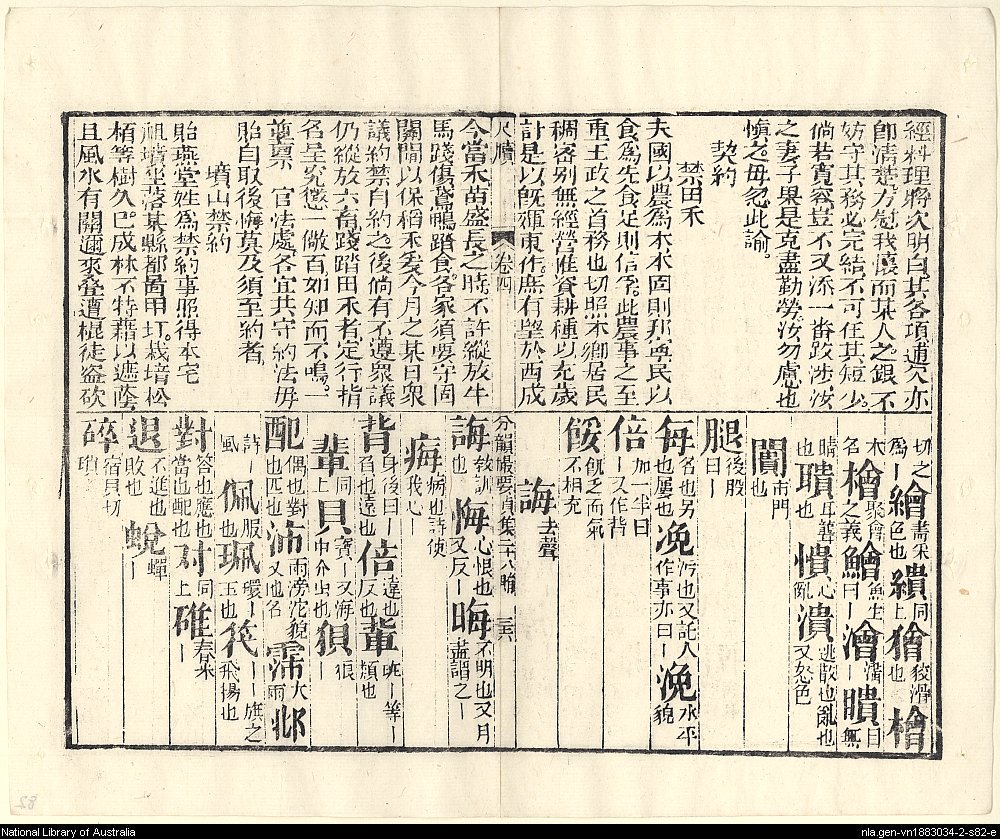 經料理將欠明白其各項逋欠亦
即清楚方慰我懷而某人之銀不
妨守其務必完結不可任其短少
倘若寬容豈不又添一番跋涉汝
之妻子果是克盡勤勞汝勿慮也
慎之毋忽此諭
契約
禁田禾
夫國以農為本本固則邦寧民以
食為先食足則信孚此農事之至
重王政之首務也切照本鄉居民
稠密別無經營惟資耕種以充歲
計是以既殫東作庶有望於西成
尺牘
卷四
今當禾苗盛長之時不許縱放牛
馬踐傷鵞鴨踏食各家須要守固
關閘以保稻禾爰今月之某日眾
議約禁自約之後倘有不遵眾議
仍縱放六畜踐踏田禾者定行指
名呈究懲一儆百如知而不鳴一
並稟 官法處各宜共守約法毋
貽自取後悔莫及須至約者
墳山禁約
貽燕堂姓為禁約事照得本宅
祖墳坐落某縣都啚甲圢栽培松
栢等樹久已成林不特藉以遮蔭
且風水有關邇來叠遭棍徒盜砍
切之 繪 畵采
為｜ 色也 繢 同上 獪 狡滑也 檜
木名 檜 聚會之義 鱠 魚生曰｜ 澮 溝｜ 瞶 目無
睛也 聵 耳聾也 憒 心亂 潰 逃散也亂也又怒色
闠 市門也
腿 後股曰｜
每 名也另也屢也 浼 污也又託人作事亦曰｜ 浼 水平貌
倍 加一半曰｜又作偝
餒 飢乏而氣不相充
誨 去聲
分韻撮要貞集二十八誨 三六
誨 教訓也 悔 心恨也又反｜ 晦 不明也又月盡謂之｜
痗 病也詩使我心｜
背 身後曰｜名也違也 倍 違也反也 輩 班｜等｜類也
軰 同上 貝 寶｜又海中介虫也 狽 狼｜
配 偶也對也匹也 沛 雨滂沱貌又地名 霈 大雨 邶
詩｜風 佩 服｜也 珮 環｜玉也 筏 ｜｜旗之飛揚也
對 答也應也當也配也 对 同上 碓 舂米｜
退 不進也敗也 蛻 蟬｜
碎 宿貝切瑣｜